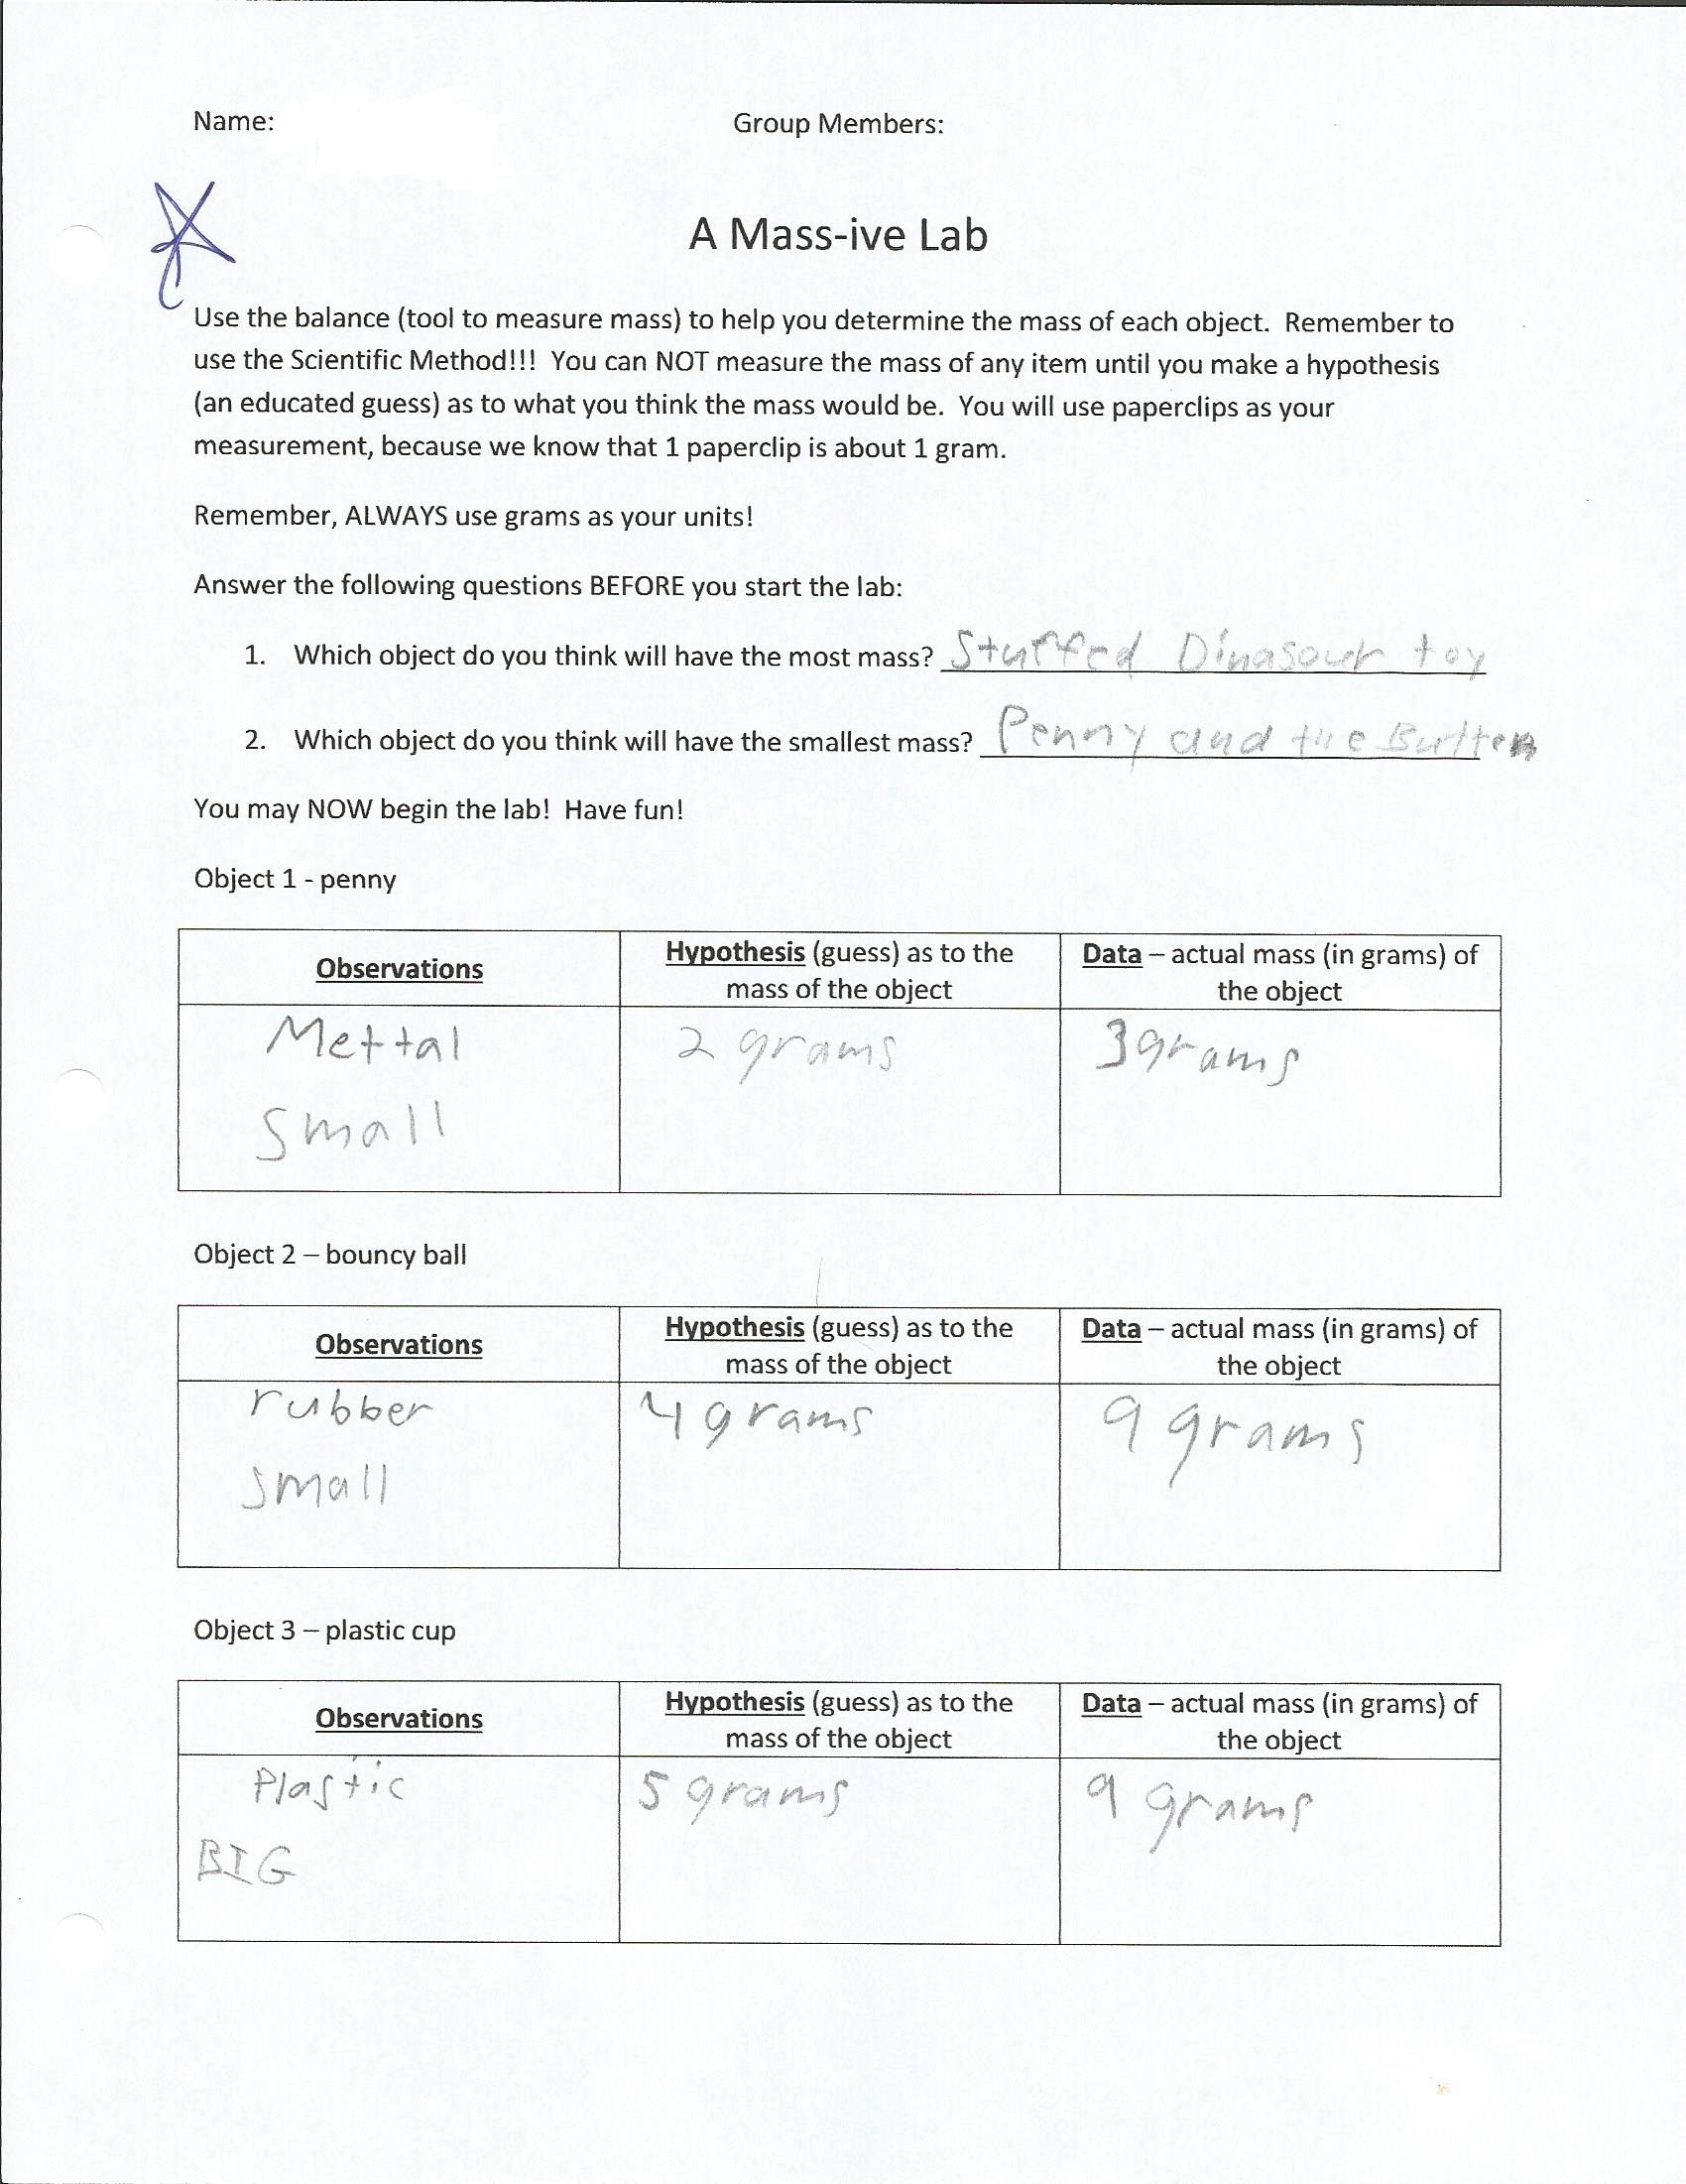 Name: Group Members:
A Mass-ive Lab
Use the balance (tool to measure mass) to help you determine the mass of each object. Remember to
use the Scientific Method!!! You can NOT measure the mass of any item until you make a hypothesis
(an educated guess) as to what you think the mass would be. You will use paperclips as your
measurement, because we know that 1 paperclip is about 1 gram.
Remember, ALWAYS use grams as your units!
Answer the following questions BEFORE you start the lab:
1. Which object do you think will have the most mass? Stuffed Dinasour toy
2. Which object do you think will have the smallest mass? Penny and the Button
You may NOW begin the lab! Have fun!
Object 1 - penny
Observations
Hypothesis (guess) as to the
mass of the object
Data – actual mass (in grams) of
the object
Mettal
Small
2 grams
3 grams
Object 2 – bouncy ball
Observations
Hypothesis (guess) as to the
mass of the object
Data – actual mass (in grams) of
the object
rubber
small
4 grams
9 grams
Object 3 – plastic cup
Observations
Hypothesis (guess) as to the
mass of the object
Data – actual mass (in grams) of
the object
Plastic
BIG
5 grams
9 grams